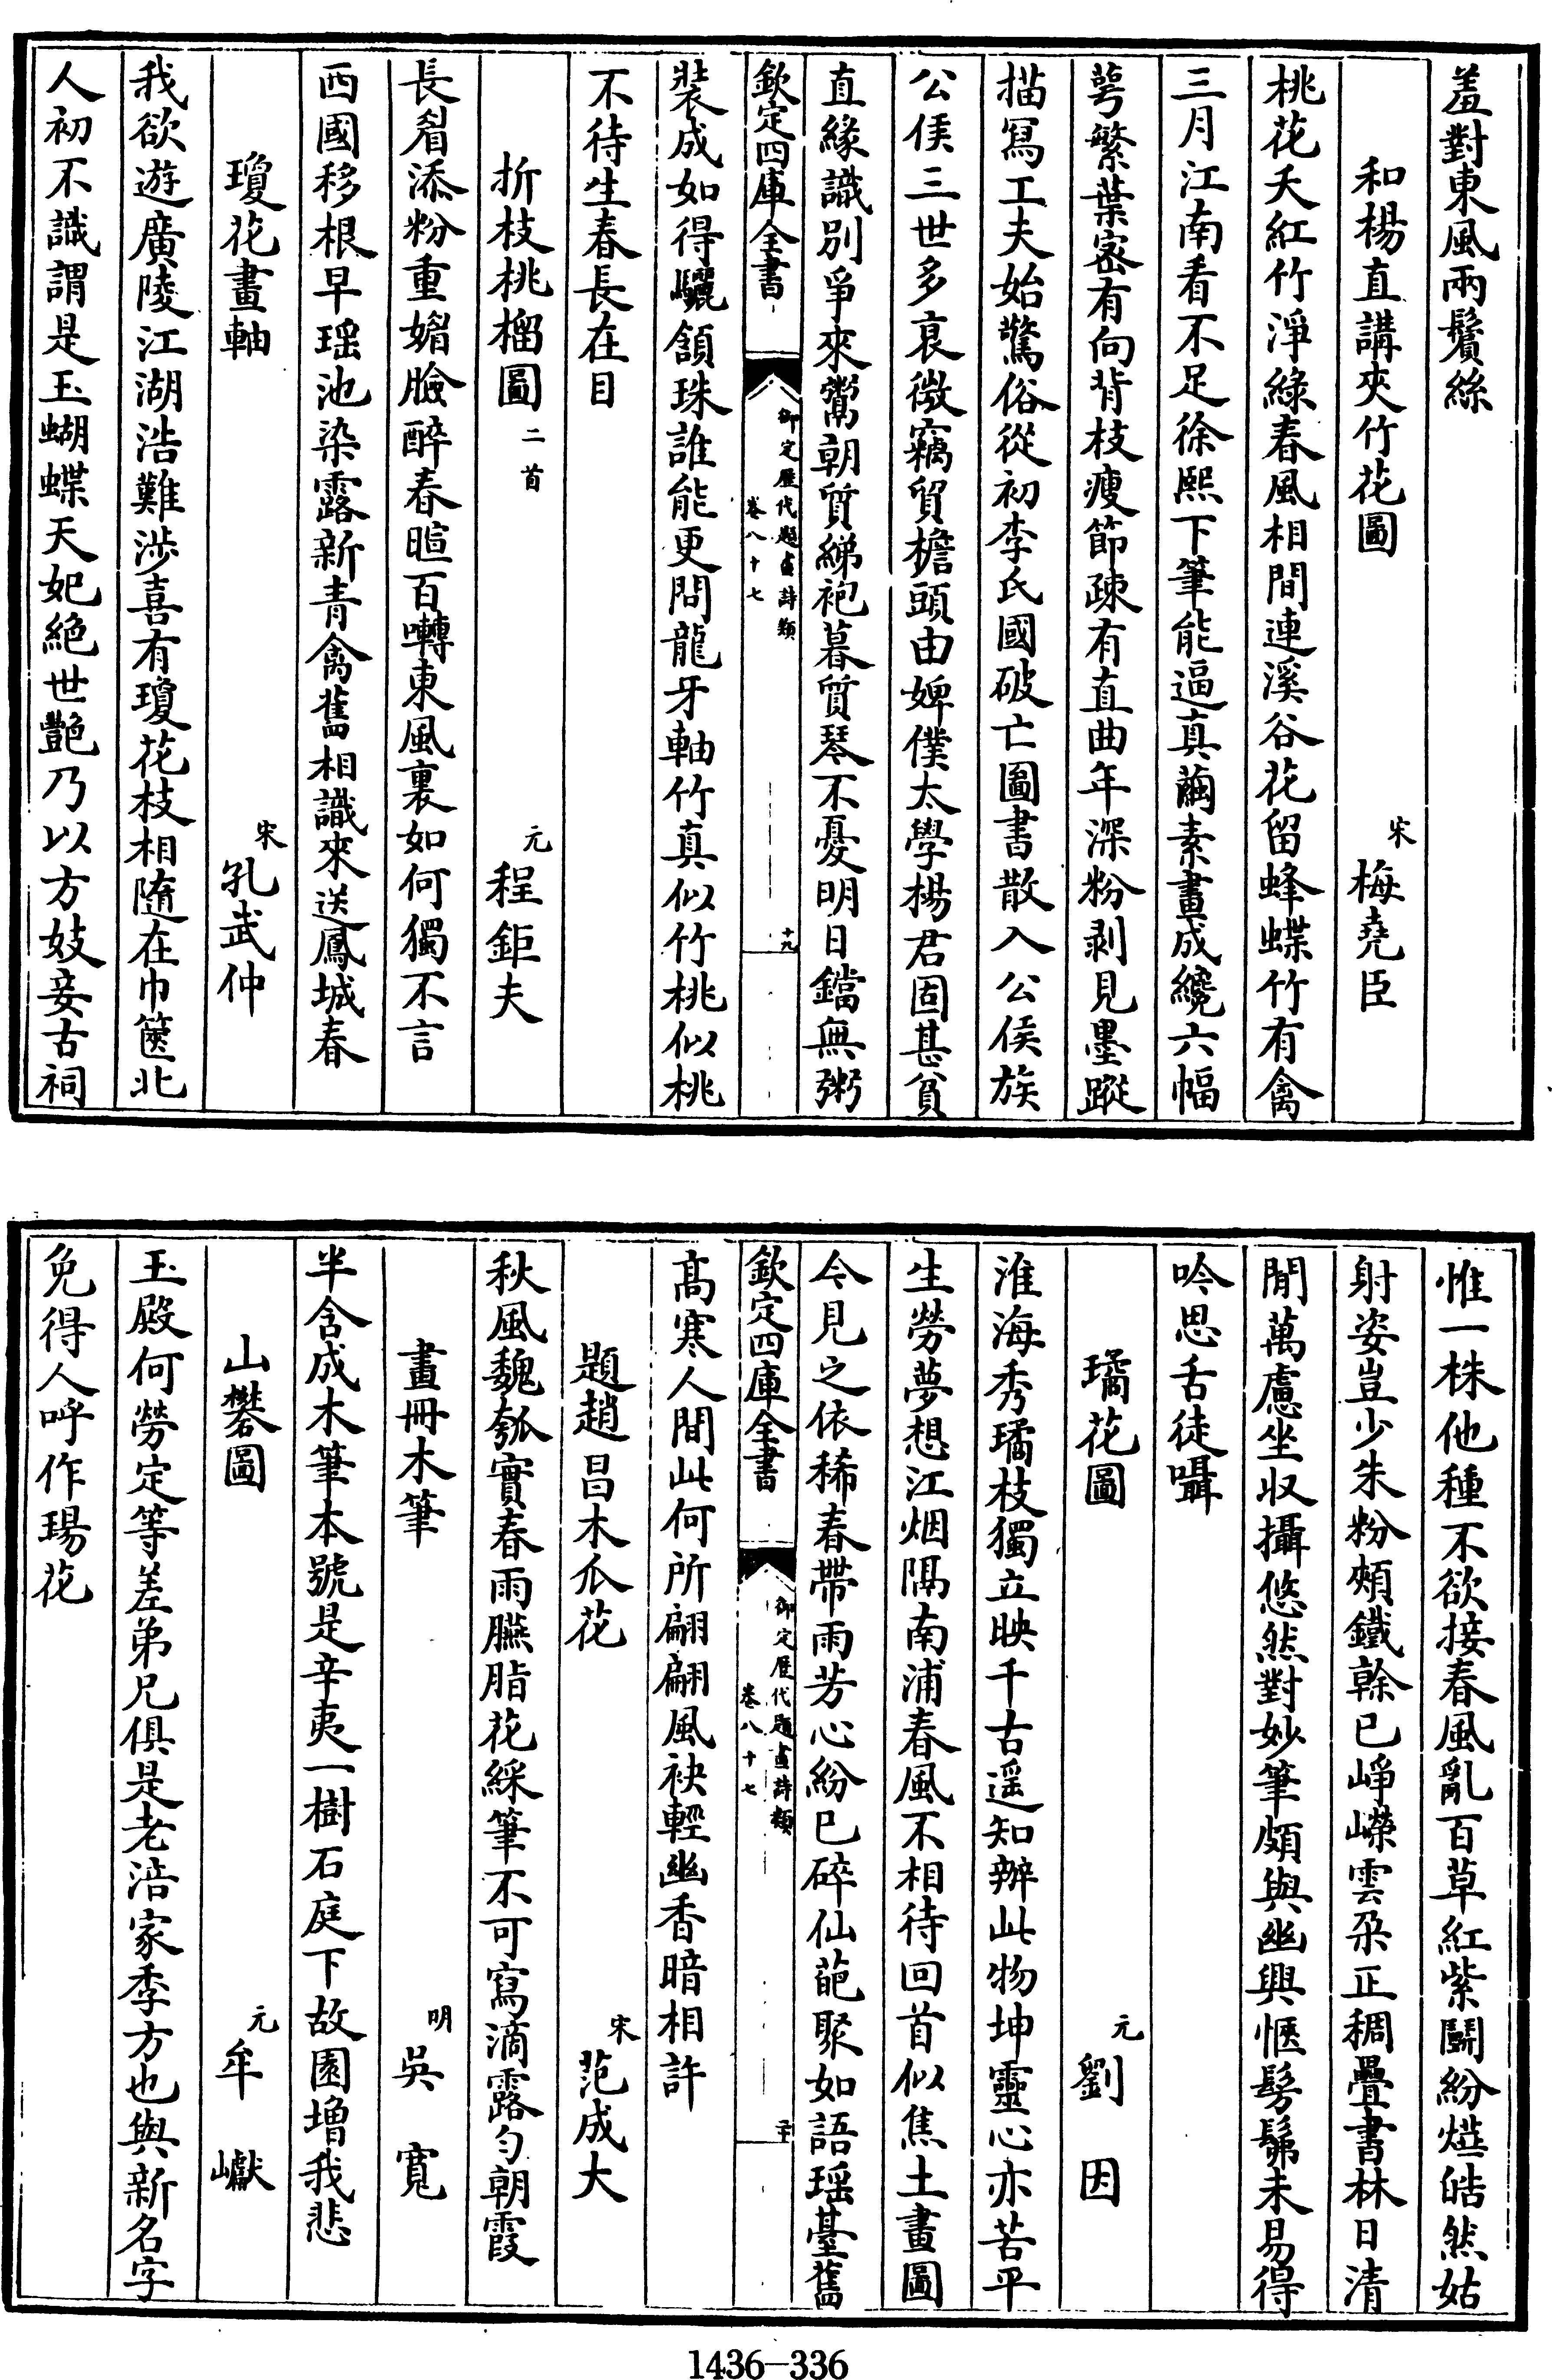 羞對東風兩鬢絲
和楊直講夾竹花圖　宋梅堯臣
桃花夭紅竹淨綠春風相間連溪谷花留蜂蝶竹有禽
三月江南看不足徐熙下筆能逼真繭素畫成纔六幅
萼繁葉密有向背枝瘦節疎有直曲年深粉剥見墨蹤
描寫工夫始驚俗從初李氏國破亡圖書散入公侯族
公侯三世多衰微竊貿擔頭由婢僕太學楊君固甚貧
直緣識別爭來鬻朝質綈袍暮質琴不憂明日鐺無粥
欽定四庫全書　御定歷代題畫詩類　卷八十七　十九
裝成如得驪頷珠誰能更問龍牙軸竹真似竹桃似桃
不待生春長在目
折枝桃榴圖二首　元程鉅夫
長眉添粉重媚臉醉春暄百囀東風裏如何獨不言
西國移根早瑶池染露新青禽舊相識來送鳳城春
瓊花畫軸　宋孔武仲
我欲遊廣陵江湖浩難涉喜有瓊花枝相隨在巾篋北
人初不識謂是玉蝴蝶天妃絕世艷乃以方妓妾古祠
惟一株他種不欲接春風亂百草紅紫鬭紛㷸皓然姑
射姿豈少朱粉頰鐵榦已崢嶸雲朶正稠疊書林日清
閒萬慮坐收攝悠然對妙筆頗與幽興愜髣髴未易得
吟思舌徒囁
璚花圖　元劉因
淮海秀璚枝獨立映千古遥知辦此物坤靈心亦苦平
生勞夢想江烟隔南浦春風不相待回首似焦土畫圖
今見之依稀春帶雨芳心紛已碎仙葩聚如語瑶臺舊
欽定四庫全書　御定歷代題畫詩類　卷八十七　二十
高寒人間此何所翩翩風袂輕幽香暗相許
題趙昌木瓜花　宋范成大
秋風魏瓠實春雨臙脂花綵筆不可寫滴露勻朝霞
畫冊木筆　明吳寬
半含成木筆本號是辛夷一樹石庭下故園增我悲
山礬圖　元牟巘
玉殿何勞定等差弟兄俱是老涪家季方也與新名字
免得人呼作瑒花
1436-336